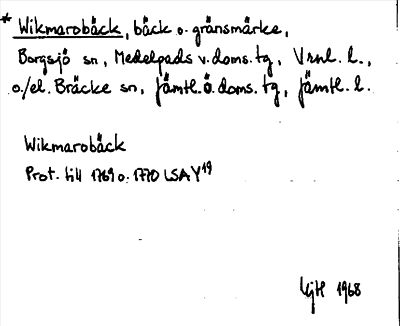 * Wikmarobäck, bäck o. gränsmärke,
Borgsjö sn, Medelpads v. doms. tg, Vrnl. l.,
o./el. Bräcke sn, Jämtl. ö. doms. tg, Jämtl. l.
Wikmarobäck
Prot. till 1769 o. 1770 LSA Y19
1968